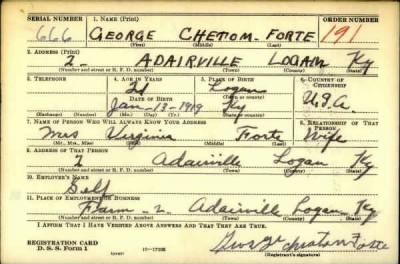 SERIAL NUMBER 1. NAME (Print) ORDER NUMBER
666 GEORGE CHETOM- FORTE 191
(First) (Middle) (Last)
2. ADDRESS (Print)
2- ADAIRVILLE LOGAN Ky
(Number and street or R. F. D. number) (Town) (County) (State)
3. TELEPHONE 4. AGE IN YEARS 5. PLACE OF BIRTH 6. COUNTRY OF CITIZENSHIP
21 Logan
DATE OF BIRTH (Town or county) U.S.A.
Jan-13-1919 Ky
(Exchange) (Number) (Mo.) (Day) (Yr.) (State or country)
7. NAME OF PERSON WHO WILL ALWAYS KNOW YOUR ADDRESS 8. RELATIONSHIP OF THAT PERSON
Mrs Virginia Forte Wife
(Mr., Mrs., Miss) (First) (Middle) (Last)
9. ADDRESS OF THAT PERSON
2 Adairville Logan Ky
(Number and street or R. F. D. number) (Town) (County) (State)
10. EMPLOYER'S NAME
Self
11. PLACE OF EMPLOYMENT OR BUSINESS
Farm - 2 - Adairville Logan Ky
(Number and street or R. F. D. number) (Town) (County) (State)
I AFFIRM THAT I HAVE VERIFIED ABOVE ANSWERS AND THAT THEY ARE TRUE.
REGISTRATION CARD
D. S. S. Form 1 Forte
(Registrant's signature)